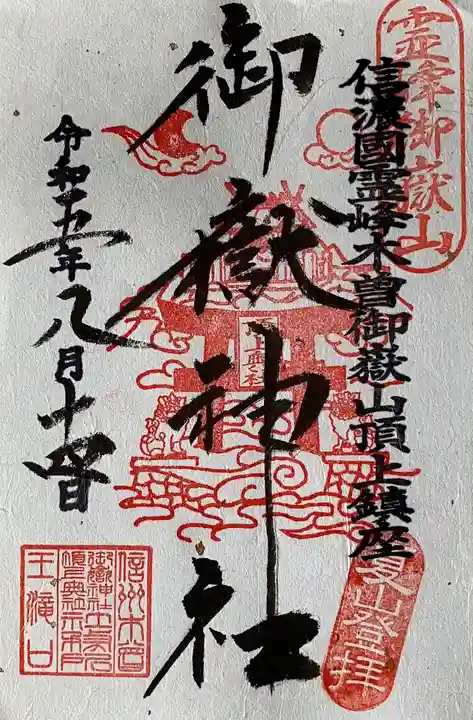 霊峯御嶽山
信濃國霊峰木曽御嶽山頂上鎮座
御嶽神社
頂上奥社
令和五年八月十四日
夏山登拝
信州木曽
王滝口